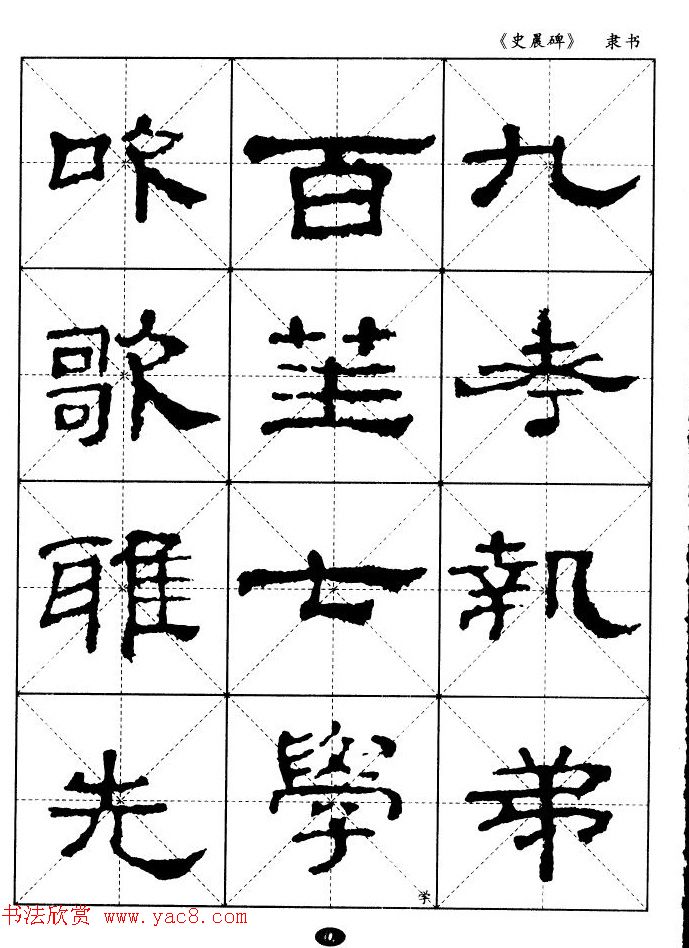 《史晨碑》 隶书
九考執弟
百笙七學
学
吹歌雅先
书法欣赏 www.yac8.com